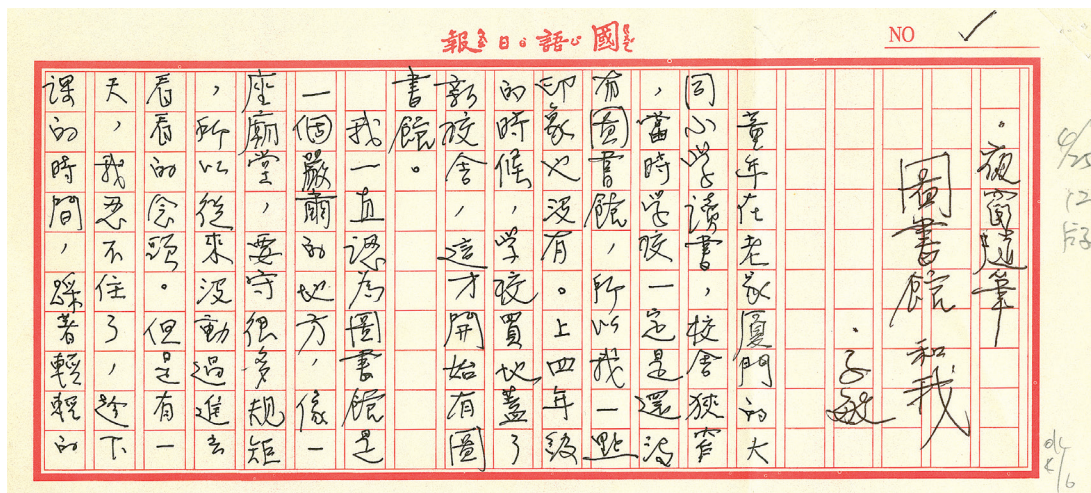 國語日報
NO ✓
·夜窗隨筆
圖書館和我
·子敏
童年在老家廈門的大
同小學讀書，校舍狹窄
，當時學校一定是還沒
有圖書館，所以我一點
印象也沒有。上四年級
的時候，學校買地蓋了
新校舍，這才開始有圖
書館。
我一直認為圖書館是
一個嚴肅的地方，像一
座廟堂，要守很多規矩
，所以從來沒動過進去
看看的念頭。但是有一
天，我忍不住了，趁下
課的時間，踩著輕輕的